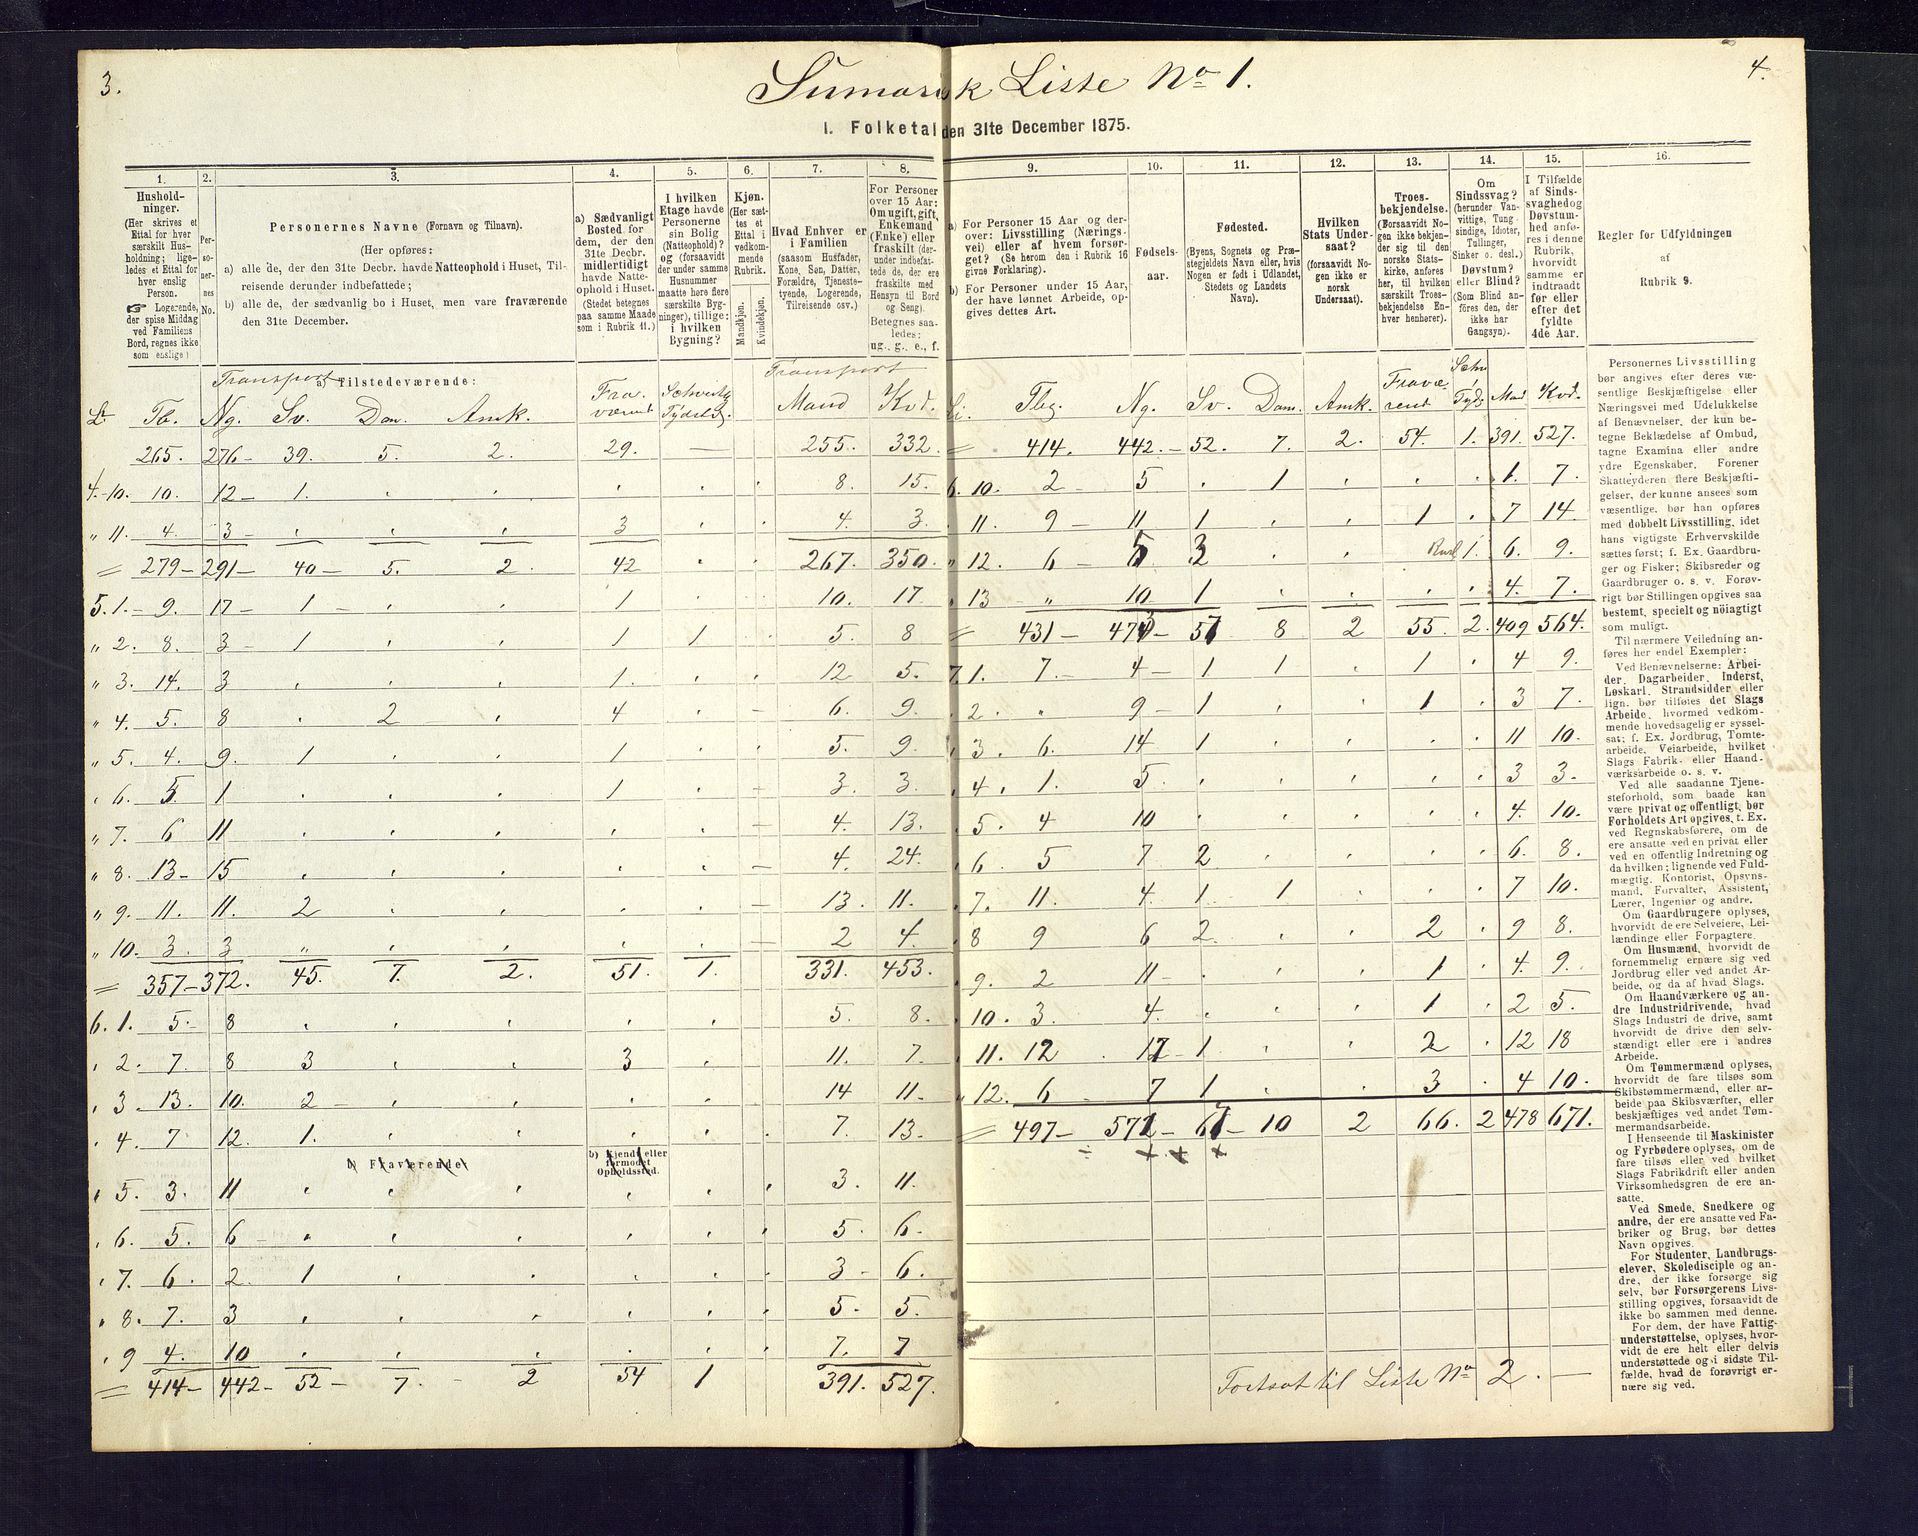 3.
4.
Sumarisk Liste No 1.
1. Folketal den 31te December 1875.
1. 2. 3. 4. 5. 6. 7. 8. 9. 10. 11. 12. 13. 14. 15. 16.
Husholdninger.
(Her skrives et Ettal for hver særskilt Husholdning; ligeledes et Ettal for hver enslig Person.
☞ Logerende, der spise Middag ved Familiens Bord, regnes ikke som enslige)
Personernes No.
Personernes Navne (Fornavn og Tilnavn).
(Her opføres:
a) alle de, der den 31te Decbr. havde Natteophold i Huset, Tilreisende derunder indbefattede;
b) alle de, der sædvanlig bo i Huset, men vare fraværende den 31te December.
a) Sædvanligt Bosted for dem, der den 31te Decbr. midlertidigt havde Natteophold i Huset.
(Stedet betegnes paa samme Maade som i Rubrik 11.)
I hvilken Etage havde Personerne sin Bolig (Natteophold)? og (forsaavidt der under samme Husnummer maatte høre flere særskilte Bygninger), tillige: i hvilken Bygning?
Kjøn.
(Her sættes et Ettal i vedkommende Rubrik.
Mandkjøn.
Kvindekjøn.
Hvad Enhver er i Familien
(saasom Husfader, Kone, Søn, Datter, Forældre, Tjenestetyende, Logerende, Tilreisende osv.)
For Personer over 15 Aar: Om ugift, gift, Enkemand (Enke) eller fraskilt (derunder indbefattede de, der ere fraskilte med Hensyn til Bord og Seng).
Betegnes saaledes: ug., g., e., f.
a) For Personer 15 Aar og derover: Livsstilling (Næringsvei) eller af hvem forsørget? (Se herom den i Rubrik 16 givne Forklaring).
b) For Personer under 15 Aar, der have lønnet Arbeide, opgives dettes Art.
Fødselsaar.
Fødested.
(Byens, Sognets og Præstegjeldets Navn eller, hvis Nogen er født i Udlandet, Stedets og Landets Navn).
Hvilken Stats Undersaat?
(forsaavidt Nogen ikke er norsk Undersaat).
Troesbekjendelse.
(Forsaavidt Nogen ikke bekjender sig til den norske Statskirke, anføres her, til hvilken særskilt Troesbekjendelse Enhver henhører).
Om Sindssvag? (herunder Vanvittige, Tungsindige, Idioter, Tullinger, Sinker o. desl.)
Døvstum? eller Blind?
(Som Blind anføres den, der ikke har Gangsyn).
I Tilfælde af Sindssvaghed og Døvstumhed anføres i denne Rubrik, hvorvidt samme er indtraadt før eller efter det fyldte 4de Aar.
Regler for Udfyldningen af Rubrik 9.
Transport a) Tilstedeværende: Transport
Lt. Tb. Ng. Sv. Dan. Amk. Fraværend Schvensk Tydsk Mand Kvd.
265. 276 – 39. 5. 2. 29. — 255. 332.
4.-10. 10. 12 – 1. 8. 15.
" 11. 4. 3 3 4. 3.
279 – 291 – 40 – 5. 2. 42 267. 350.
5. 1. – 9. 17 – 1 – 1 10. 17
" 2. 8. 3 – 1 1 1 5. 8
" 3. 14. 3 1. 12 5.
" 4. 5. 8 2 4 6. 9.
" 5. 4. 9. 1 1 5. 9.
" 6. 5 1 1 3. 3.
" 7. 6 11 4. 13.
" 8. 13 – 15 4. 24.
" 9. 11. 11. 2 13. 11.
" 10. 3. 3 " 2 4.
357 – 372. 45. 7. 2. 51. 1. 331. 453.
6. 1. 5. 8 5. 8.
2. 7. 8 3 3 11. 7.
3. 13. 10. 2 – 14 11.
4. 7 12. 1. 7. 13.
b) Fraværende: b) Kjendt eller formodet Opholdssted.
5. 3. 11 3. 11.
6. 5. 6 – 5. 6.
7. 6. 2 1 3 – 6.
8. 7. 3 5. 5.
9 4. 10 7. 7
414 – 442 – 52 – 7. – 2 54 1 391. 527.
Li. Tbg. Ng. Sv. Dam. Amk. Fraværend Schv Tyds Mad Kvd.
414. 442. – 52. 7. 2. 54. 1. 391. 527.
6. 10. 2 5 1 1. 7.
11. 9 – 11 1 1 7 14.
" 12. 6 – 5 3 1. 6. 9.
" 13 " 10 1 4. 7.
431 – 473 – 57 8 2 55. 2. 409 564.
7. 1. 7. – 4 – 1 1 1 4 9.
2. " 9 – 1 1 3 7.
3. 6. 14 1 11 10.
4. 1. 5. 3 3.
5. 4 10 4. 10.
6. 5 7 2 6. 8.
7. 11. 4. 1 1 7 10.
8 9 6 2. 2 9 8.
9. 2 11 – 1 4. 9.
10. 3. 4. 1 2 5.
11. 12 17 – 1 2 12 18
" 12. 6 – 7 1 3 4 10.
497 – 572 – 67 – 10 2 66. 2 478 671.
÷ + + +
Fortsat til Liste No 2. —
Personernes Livsstilling bør angives efter deres væsentlige Beskjæftigelse eller Næringsvei med Udelukkelse af Benævnelser, der kun betegne Beklædelse af Ombud, tagne Examina eller andre ydre Egenskaber. Forener Skatteyderen flere Beskjæftigelser, der kunne ansees som væsentlige, bør han opføres med dobbelt Livsstilling, idet hans vigtigste Erhvervskilde sættes først; f. Ex. Gaardbruger og Fisker; Skibsreder og Gaardbruger o. s. v. Forøvrigt bør Stillingen opgives saa bestemt, specielt og nøiagtigt som muligt.
Til nærmere Veiledning anføres her endel Exempler:
Ved Benævnelserne: Arbeider, Dagarbeider, Inderst, Løskarl, Strandsidder eller lign. bør tilføies det Slags Arbeide, hvormed vedkommende hovedsagelig er sysselsat; f. Ex. Jordbrug, Tomtearbeide, Veiarbeide, hvilket Slags Fabrik- eller Haandværksarbeide o. s. v.
Ved alle saadanne Tjenesteforhold, som baade kan være privat og offentligt, bør Forholdets Art opgives, t. Ex. ved Regnskabsførere, om de ere ansatte ved en privat eller ved en offentlig Indretning og da hvilken; lignende ved Fuldmægtig, Kontorist, Opsynsmand, Forvalter, Assistent, Lærer, Ingeniør og andre.
Om Gaardbrugere oplyses, hvorvidt de ere Selveiere, Leilændinge eller Forpagtere.
Om Husmænd, hvorvidt de fornemmelig ernære sig ved Jordbrug eller ved andet Arbeide, og da af hvad Slags.
Om Haandværkere og andre Industridrivende, hvad Slags Industri de drive, samt hvorvidt de drive den selvstændigt eller ere i andres Arbeide.
Om Tømmermænd oplyses, hvorvidt de fare tilsøs som Skibstømmermænd, eller arbeide paa Skibsværfter, eller beskjæftiges ved andet Tømmermandsarbeide.
I Henseende til Maskinister og Fyrbødere oplyses, om de fare tilsøs eller ved hvilket Slags Fabrikdrift eller anden Virksomhedsgren de ere ansatte.
Ved Smede, Snedkere og andre, der ere ansatte ved Fabriker og Brug, bør dettes Navn opgives.
For Studenter, Landbrugselever, Skoledisciple og andre, der ikke forsørge sig selv, bør Forsørgerens Livsstilling opgives, forsaavidt de ikke bo sammen med denne.
For dem, der have Fattigunderstøttelse, oplyses, hvorvidt de ere helt eller delvis understøttede og i sidste Tilfælde, hvad de forøvrigt ernære sig ved.